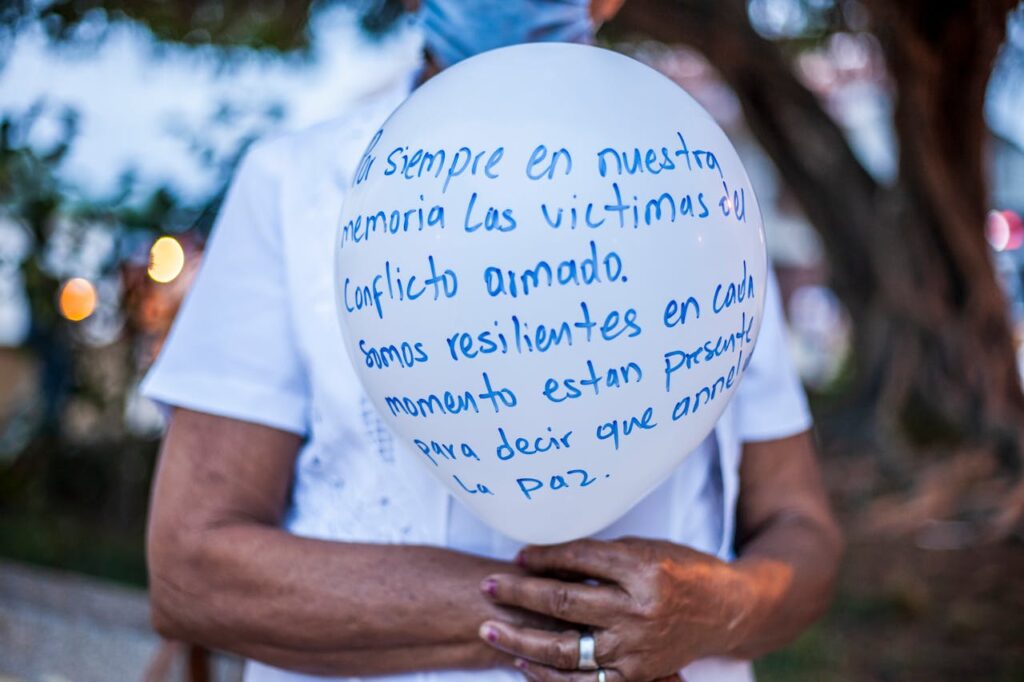 Por siempre en nuestra
memoria Las victimas del
Conflicto armado.
somos resilientes en cada
momento estan presente
para decir que
La paz.